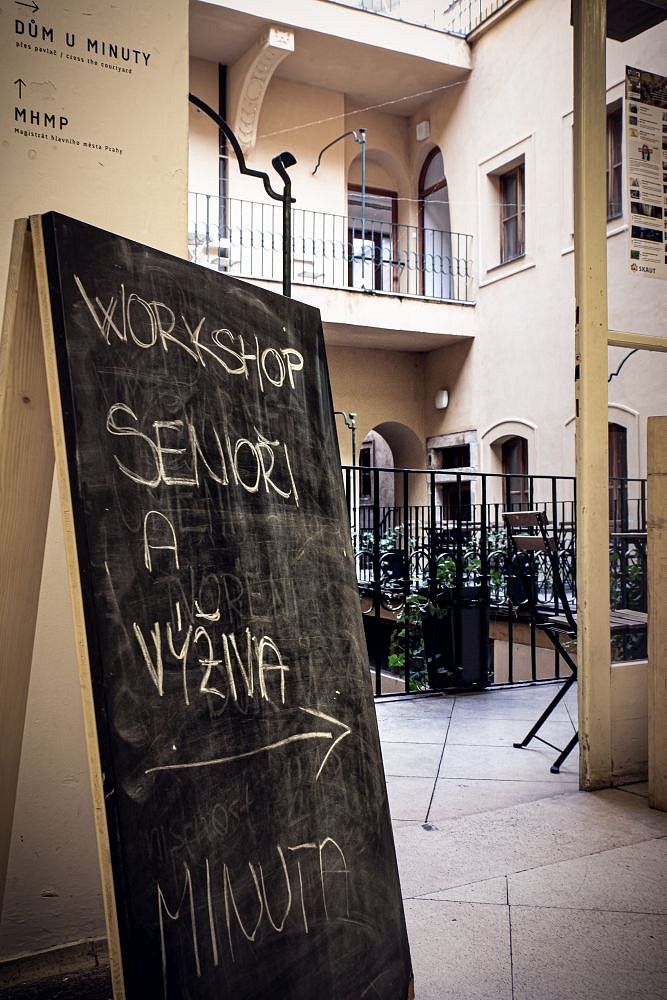 DŮM U MINUTY
přes pavlač / cross the courtyard
MHMP
Magistrát hlavního města Prahy
WORKSHOP
SENIOŘI
A
VÝŽIVA
MINUTA
SKAUT